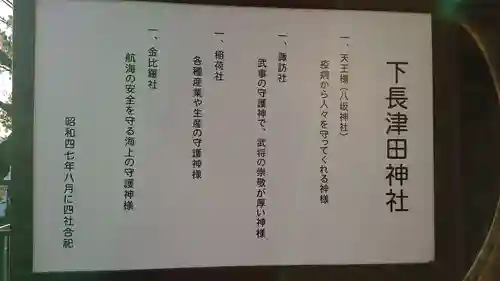 下長津田神社
一、天王様(八坂神社)
疫病から人々を守ってくれる神様
一、諏訪社
武事の守護神で、武将の崇敬が厚い神様
一、稲荷社
各種産業や生産の守護神様
一、金比羅社
航海の安全を守る海上の守護神様
昭和四七年八月に四社合祀